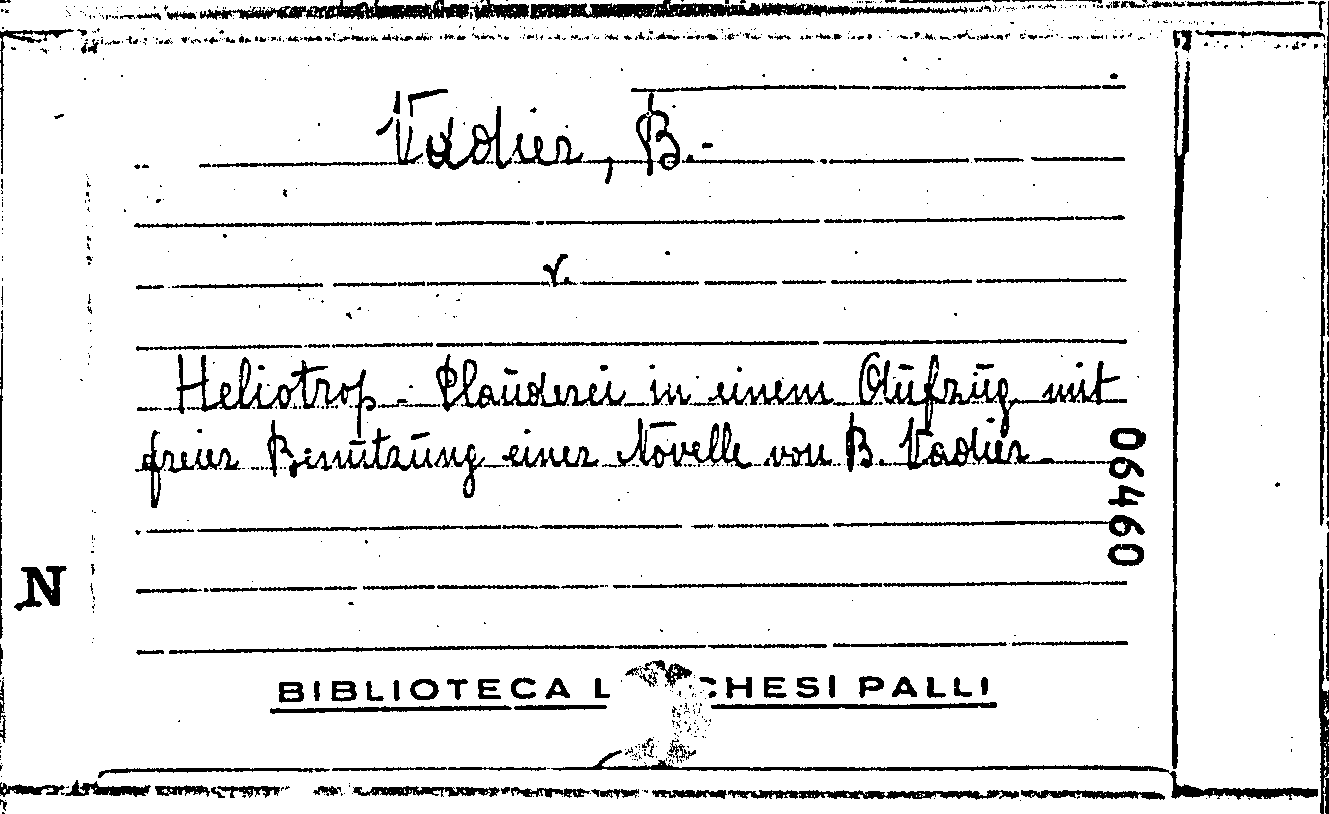 Vadier, B.-
v.
Heliotrop - Plauderei in einem Aufzug mit
freier Benutzung einer Novelle von B. Vadier -
06460
N
BIBLIOTECA L CHESI PALLI